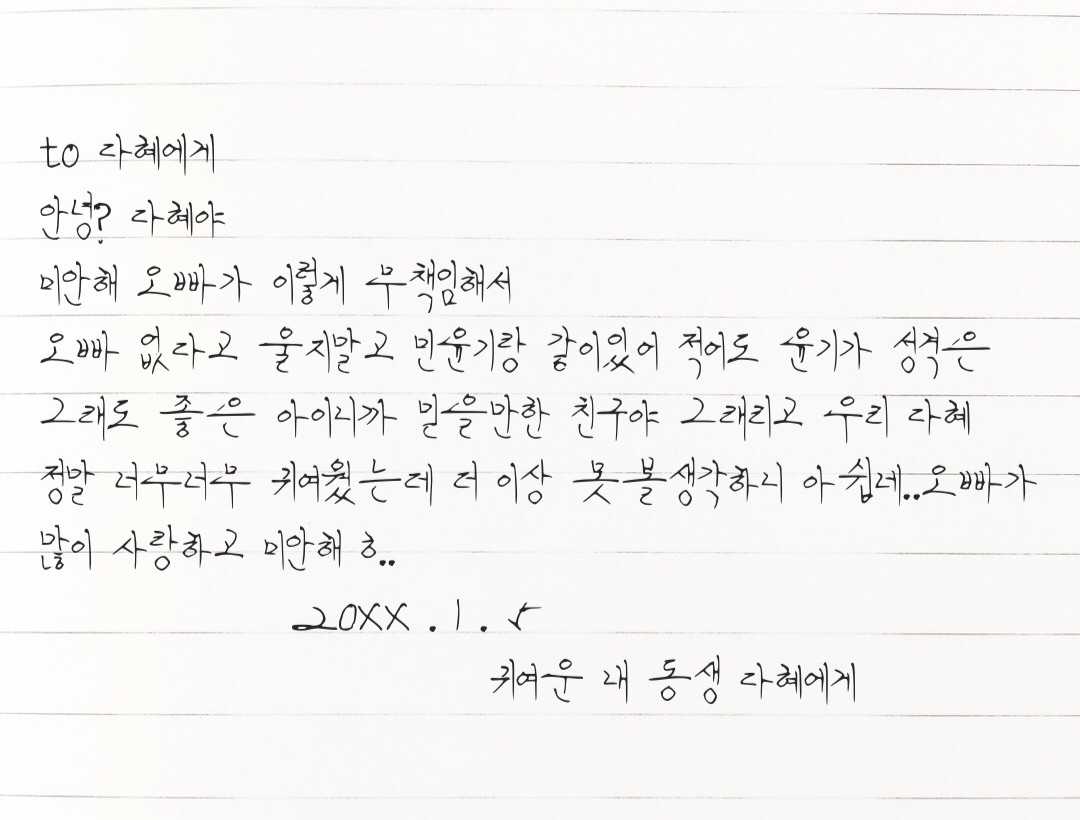 to 다혜에게
안녕? 다혜야
미안해 오빠가 이렇게 무책임해서
오빠 없다고 울지말고 민윤기랑 같이있어 적어도 윤기가 성격은
그래도 좋은 아이니까 믿을만한 친구야 그래리고 우리 다혜
정말 너무너무 귀여웠는데 더 이상 못 볼 생각하니 아쉽네..오빠가
많이 사랑하고 미안해 ㅎ..
20XX.1.5
귀여운 내 동생 다혜에게